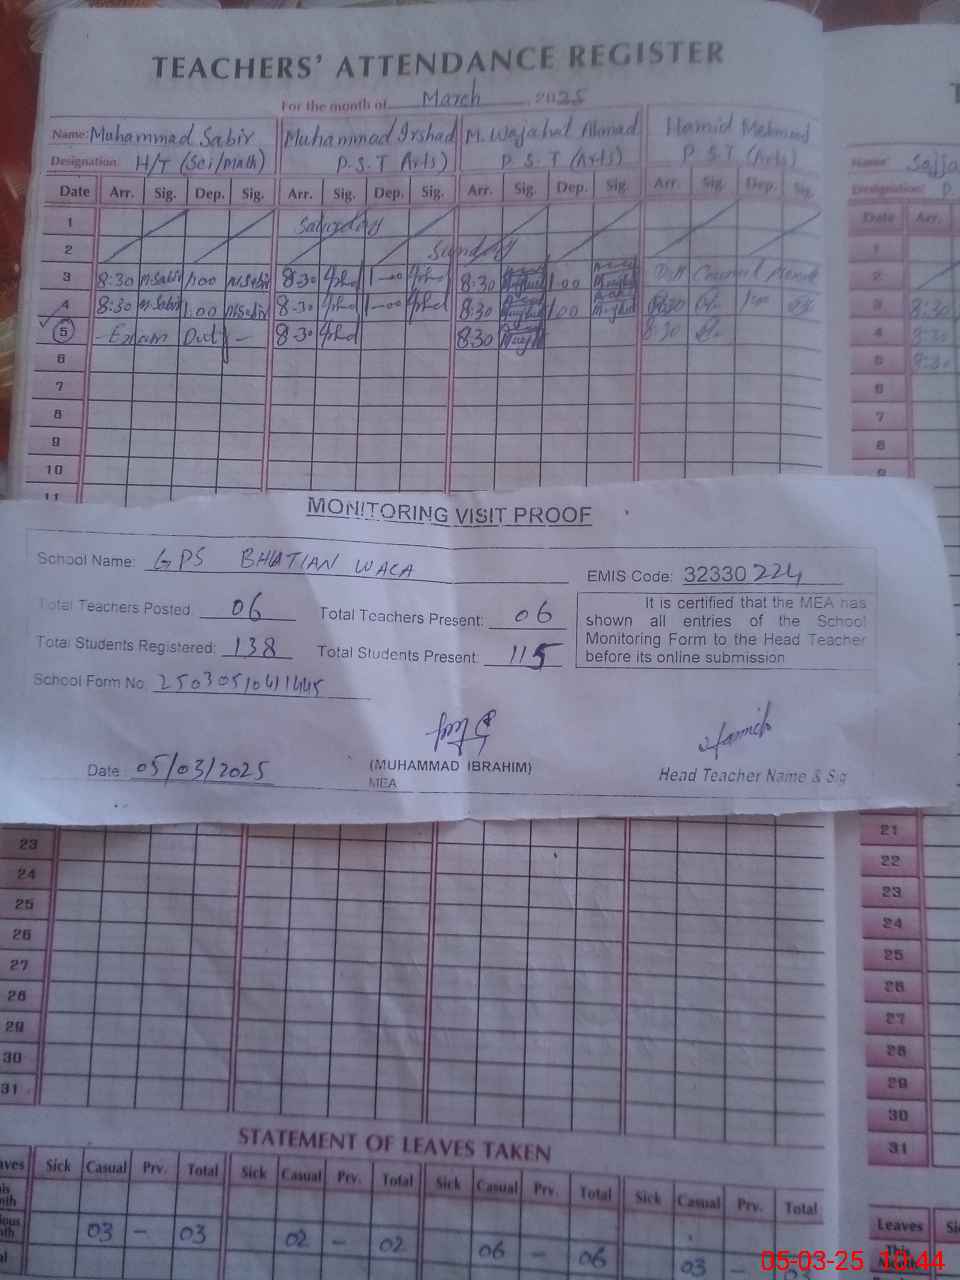 TEACHERS' ATTENDANCE REGISTER
For the month of March, 2025
Name: Muhammad Sabir Muhammad Irshad M. Wajahat Ahmad Hamid Mehmood
Designation: H/T (Sci/math) P.S.T (Arts) P.S.T (Arts) P.S.T (Arts)
Date Arr. Sig. Dep. Sig. Arr. Sig. Dep. Sig. Arr. Sig. Dep. Sig. Arr. Sig. Dep. Sig.
1 Saturday
2 Sunday
3 8:30 M Sabir 1:00 M Sabir 8-30 1-00 8:30 1:00
4 8:30 M Sabir 1:00 M Sabir 8-30 1-00 8:30 1:00 8:30 1:00
5 - Exam Duty - 8-30 8:30 8:30
6
7
8
9
10
11
Name:
Designation:
Date Arr.
1
2
3 8:30
4 8:30
5 8:30
6
7
8
9
MONITORING VISIT PROOF
School Name: GPS BHATIAN WALA
EMIS Code: 32330224
Total Teachers Posted: 06 Total Teachers Present: 06
Total Students Registered: 138 Total Students Present: 115
School Form No. 25030510411445
It is certified that the MEA has
shown all entries of the School
Monitoring Form to the Head Teacher
before its online submission
Date: 05/03/2025
(MUHAMMAD IBRAHIM)
MEA
Head Teacher Name & Sig
23
24
25
26
27
28
29
30
31
21
22
23
24
25
26
27
28
29
30
31
STATEMENT OF LEAVES TAKEN
Sick Casual Prv. Total Sick Casual Prv. Total Sick Casual Prv. Total Sick Casual Prv. Total
03 - 03 02 - 02 06 - 06 03 -
Leaves
This
05-03-25 10:44